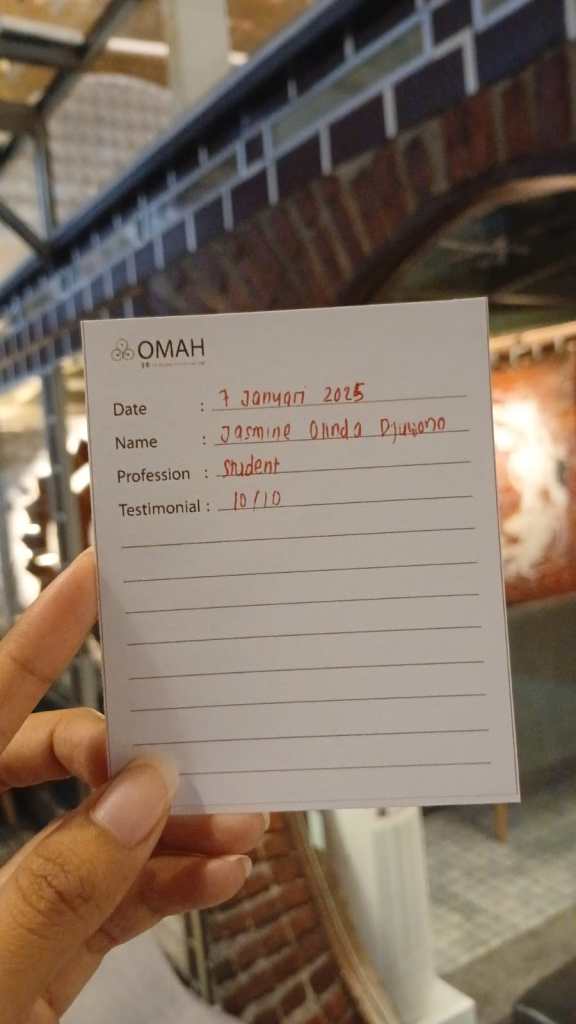 OMAH
Date : 7 Januari 2025
Name : Jasmine Olinda Djuwono
Profession : Student
Testimonial : 10/10